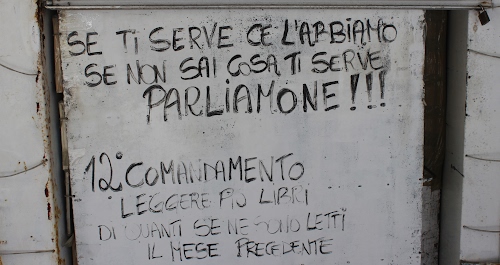 SE TI SERVE CE L'ABBIAMO
SE NON SAI COSA TI SERVE
PARLIAMONE!!!
12° COMANDAMENTO
LEGGERE PIÙ LIBRI
DI QUANTI SE NE SONO LETTI
IL MESE PRECEDENTE